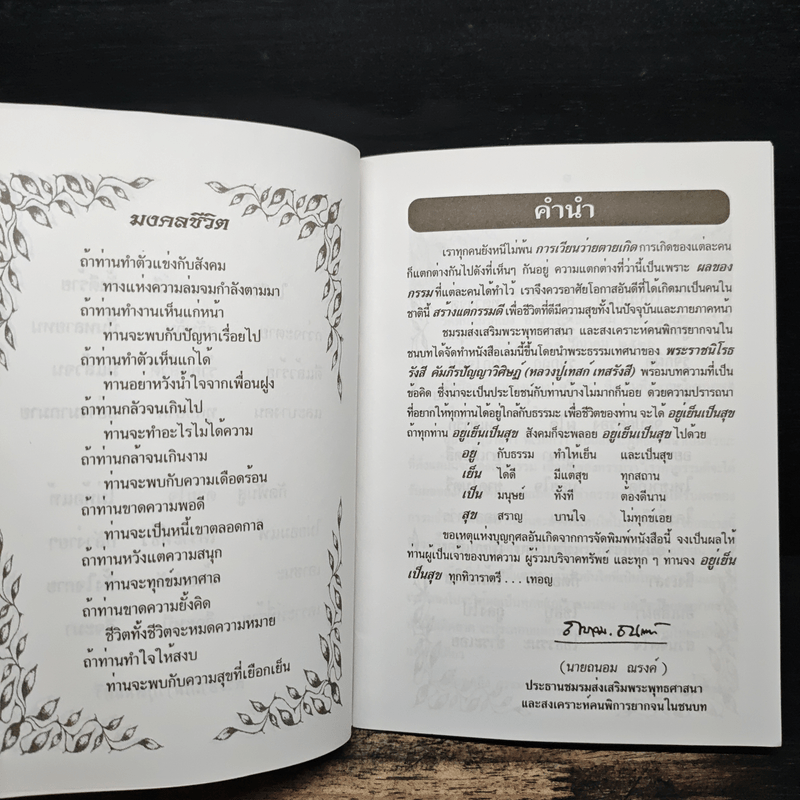 มงคลชีวิต
ถ้าท่านทำตัวแข่งกับสังคม
ทางแห่งความล่มจมกำลังตามมา
ถ้าท่านทำงานเห็นแก่หน้า
ท่านจะพบกับปัญหาเรื่อยไป
ถ้าท่านทำตัวเห็นแก่ได้
ท่านอย่าหวังน้ำใจจากเพื่อนฝูง
ถ้าท่านกลัวจนเกินไป
ท่านจะทำอะไรไม่ได้ความ
ถ้าท่านกล้าจนเกินงาม
ท่านจะพบกับความเดือดร้อน
ถ้าท่านขาดความพอดี
ท่านจะเป็นหนี้เขาตลอดกาล
ถ้าท่านหวังแต่ความสนุก
ท่านจะทุกข์มหาศาล
ถ้าท่านขาดความยั้งคิด
ชีวิตทั้งชีวิตจะหมดความหมาย
ถ้าท่านทำใจให้สงบ
ท่านจะพบกับความสุขที่เยือกเย็น
คำนำ
เราทุกคนยังหนีไม่พ้น การเวียนว่ายตายเกิด การเกิดของแต่ละคน
ก็แตกต่างกันไปดังที่เห็นๆ กันอยู่ ความแตกต่างที่ว่านี้เป็นเพราะ ผลของ
กรรม ที่แต่ละคนได้ทำไว้ เราจึงควรอาศัยโอกาสอันดีที่ได้เกิดมาเป็นคนใน
ชาตินี้ สร้างแต่กรรมดี เพื่อชีวิตที่ดีมีความสุขทั้งในปัจจุบันและภายภาคหน้า
ชมรมส่งเสริมพระพุทธศาสนา และสงเคราะห์คนพิการยากจนใน
ชนบทได้จัดทำหนังสือเล่มนี้ขึ้นโดยนำพระธรรมเทศนาของ พระราชนิโรธ
รังสี คัมภีรปัญญาวิศิษฏ์ (หลวงปู่เทสก เทสรังสี) พร้อมบทความที่เป็น
ข้อคิด ซึ่งน่าจะเป็นประโยชน์กับท่านบ้างไม่มากก็น้อย ด้วยความปรารถนา
ที่อยากให้ทุกท่านได้อยู่ใกล้กับธรรมะ เพื่อชีวิตของท่าน จะได้ อยู่เย็นเป็นสุข
ถ้าทุกท่าน อยู่เย็นเป็นสุข สังคมก็จะพลอย อยู่เย็นเป็นสุข ไปด้วย
อยู่ กับธรรม ทำให้เย็น และเป็นสุข
เย็น ได้ดี มีแต่สุข ทุกสถาน
เป็น มนุษย์ ทั้งที ต้องดีนาน
สุข สราญ บานใจ ไม่ทุกข์เอย
ขอเหตุแห่งบุญกุศลอันเกิดจากการจัดพิมพ์หนังสือนี้ จงเป็นผลให้
ท่านผู้เป็นเจ้าของบทความ ผู้ร่วมบริจาคทรัพย์ และทุก ๆ ท่านจง อยู่เย็น
เป็นสุข ทุกทิวาราตรี . . . เทอญ
(นายถนอม ณรงค์)
ประธานชมรมส่งเสริมพระพุทธศาสนา
และสงเคราะห์คนพิการยากจนในชนบท